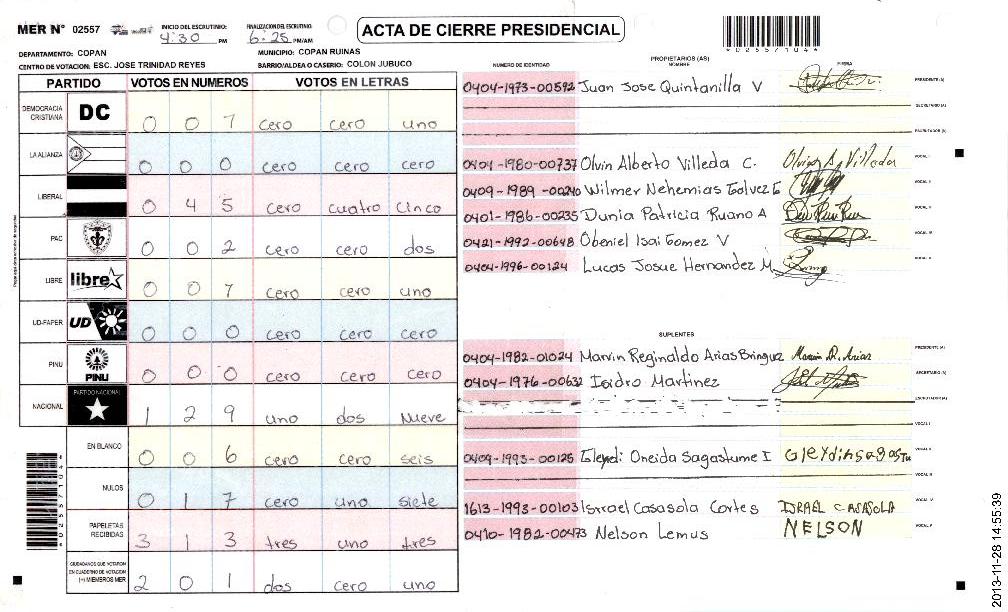 MER Nº 02557
INICIO DEL ESCRUTINIO: 4:30 PM
FINALIZACION DEL ESCRUTINIO: 6:25 PM/AM
ACTA DE CIERRE PRESIDENCIAL
*02557104*
DEPARTAMENTO: COPAN
MUNICIPIO: COPAN RUINAS
CENTRO DE VOTACION: ESC. JOSE TRINIDAD REYES
BARRIO/ALDEA O CASERIO: COLON JUBUCO
PARTIDO VOTOS EN NUMEROS VOTOS EN LETRAS
DEMOCRACIA CRISTIANA DC 0 0 7 cero cero uno
LA ALIANZA 0 0 0 cero cero cero
LIBERAL 0 4 5 cero cuatro cinco
PAC 0 0 2 cero cero dos
LIBRE libre 0 0 7 cero cero uno
UD-FAPER UD 0 0 0 cero cero cero
PINU PINU 0 0 0 cero cero cero
NACIONAL PARTIDO NACIONAL 1 2 9 uno dos Nueve
EN BLANCO 0 0 6 cero cero seis
NULOS 0 1 7 cero uno siete
PAPELETAS RECIBIDAS 3 1 3 tres uno tres
CIUDADANOS QUE VOTARON EN CUADERNO DE VOTACION (+) MIEMBROS MER 2 0 1 dos cero uno
NUMERO DE IDENTIDAD
PROPIETARIOS (AS)
NOMBRE
FIRMA
0404-1973-00592 Juan Jose Quintanilla V PRESIDENTE (A)
SECRETARIO (A)
ESCRUTADOR (A)
0404-1980-00737 Olvin Alberto Villeda C. VOCAL I
0409-1989-00240 Wilmer Nehemias Galvez G VOCAL II
0401-1986-00235 Dunia Patricia Ruano A
0421-1992-00648 Obeniel Isai Gomez V VOCAL IV
0404-1996-00124 Lucas Josue Hernandez M VOCAL V
SUPLENTES
0404-1982-01024 Marvin Reginaldo Arias Bringuez Marvin R. Arias PRESIDENTE (A)
0404-1976-00632 Isidro Martinez SECRETARIO (A)
ESCRUTADOR (A)
VOCAL I
0409-1993-00125 Gleydi Oneida Sagastume I VOCAL II
VOCAL III
1613-1993-00103 Israel Casasola Cortes ISRAEL CASASOLA VOCAL IV
0410-1982-00473 Nelson Lemus NELSON VOCAL V
*02557104*
2013-11-28 14:55:39